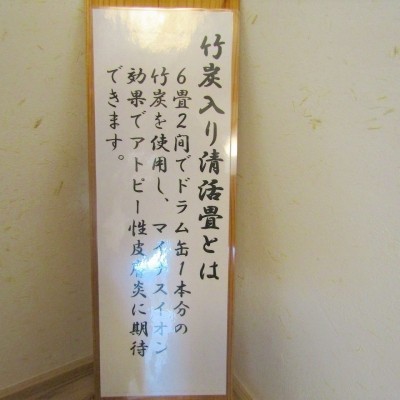 竹炭入り清活畳とは
6畳2間でドラム缶1本分の
竹炭を使用し、マイナスイオン
効果でアトピー性皮膚炎に期待
できます。